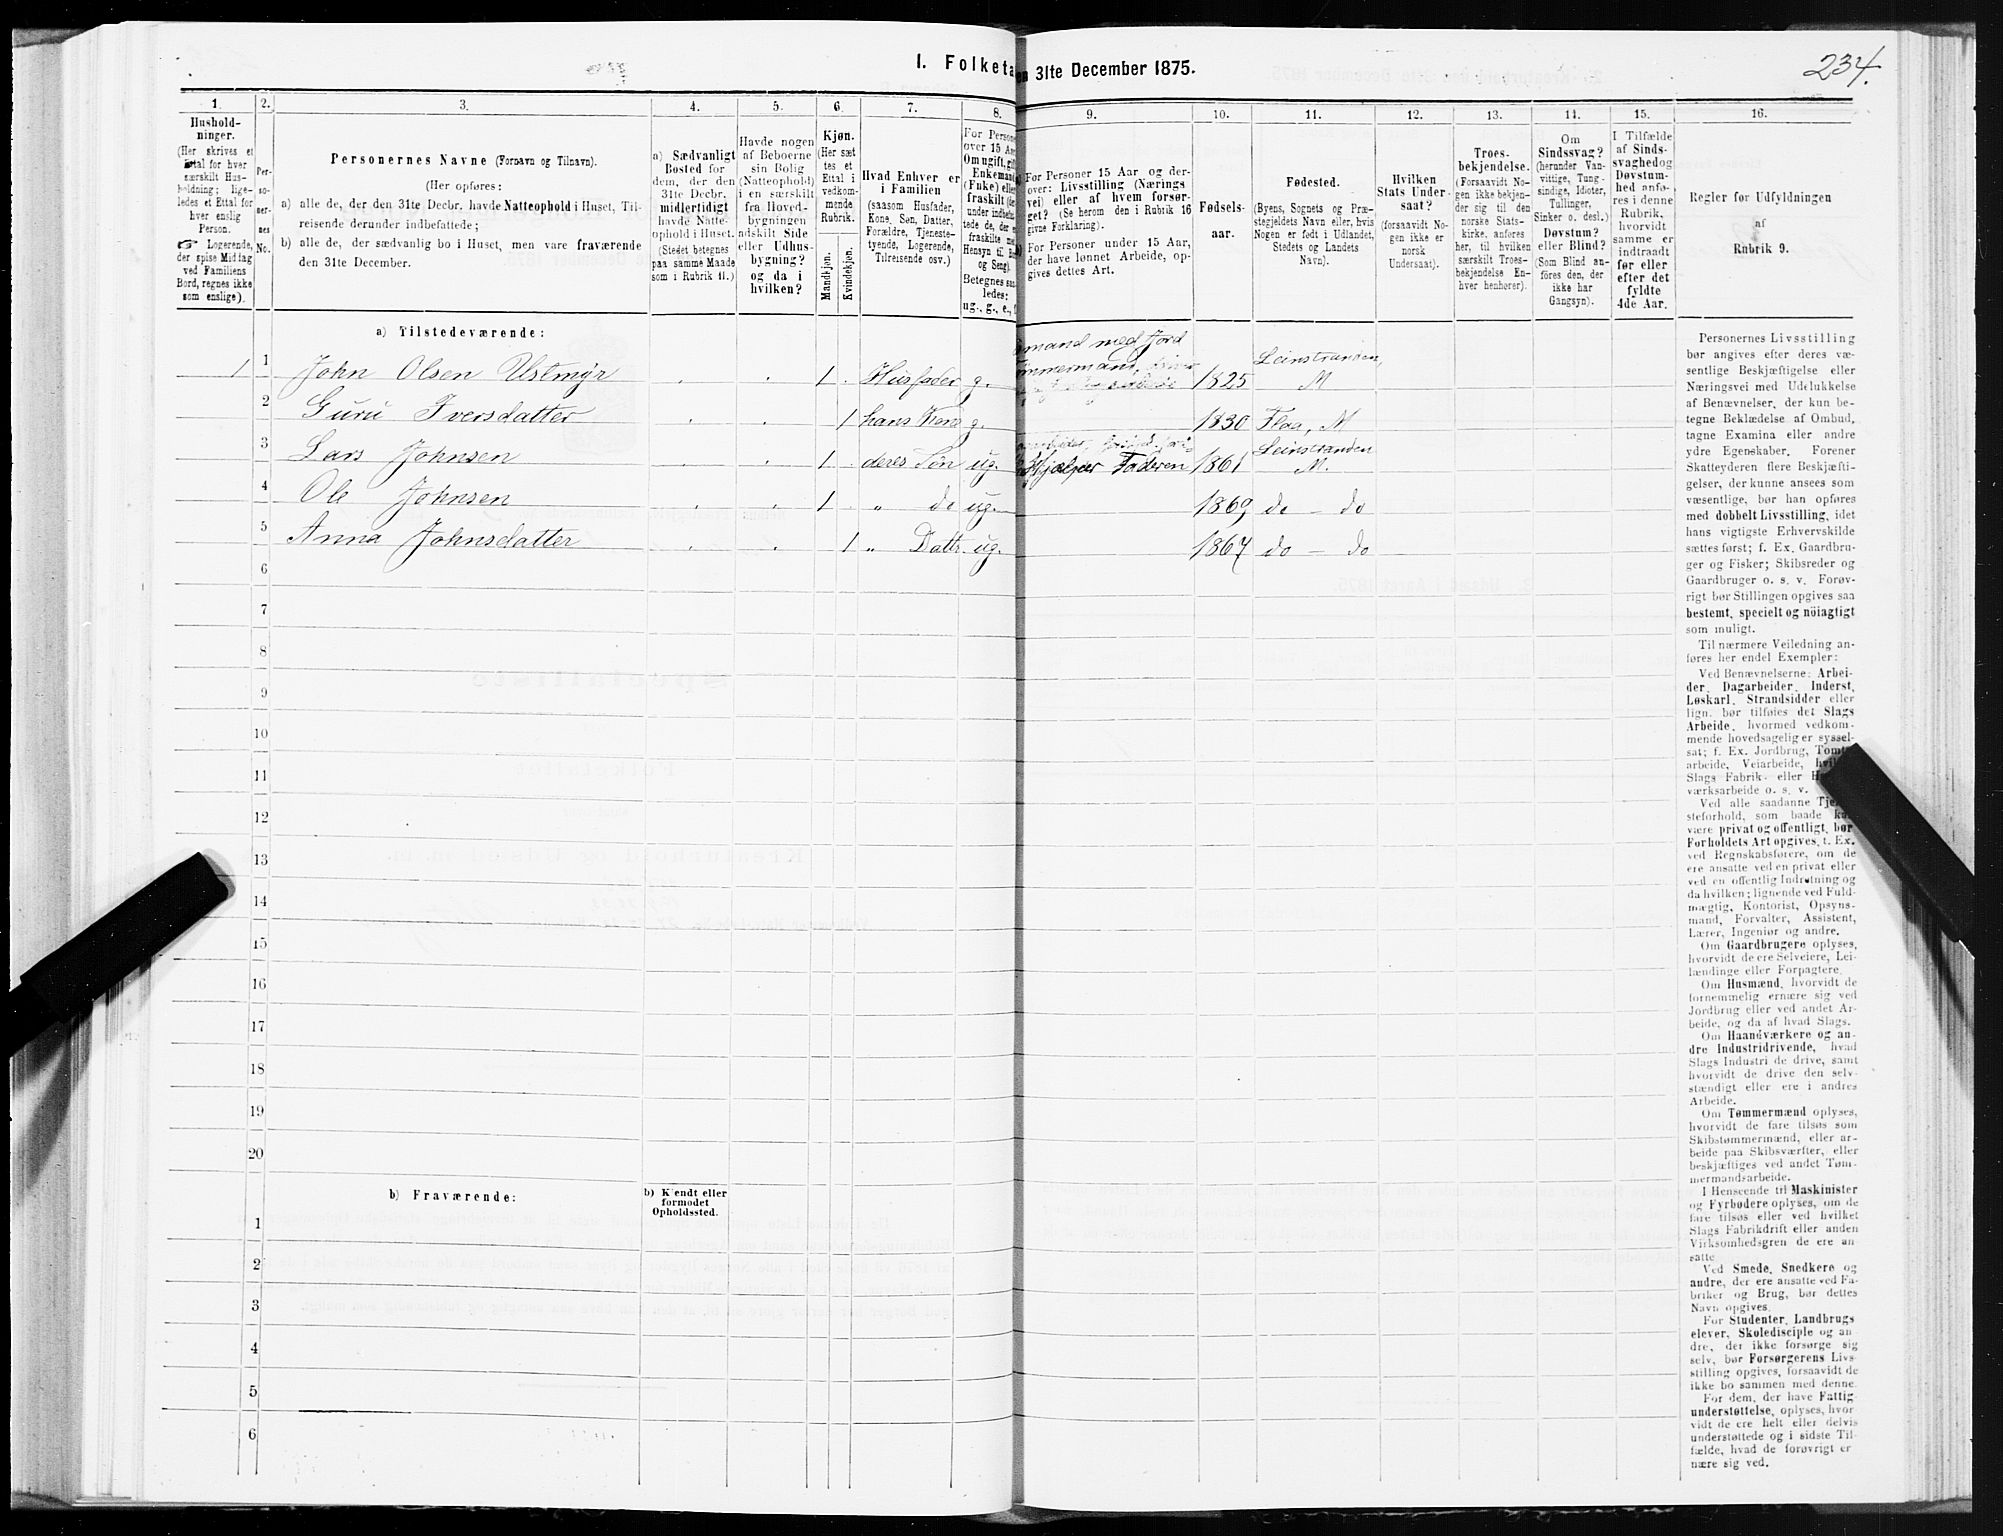 I. Folketa
en 31te December 1875.
234.
1.
2.
3.
4.
5.
6.
7.
8.
9.
10.
11.
12.
13.
14.
15.
16.
Hushold-
ninger.
(Her skrives et
Ettal for hver
særskilt Hus-
holdning; lige-
ledes et Ettal for
hver enslig
Person.
☞ Logerende,
der spise Middag
ved Familiens
Bord, regnes ikke
som enslige).
Per-
so-
ner-
nes
No.
Personernes Navne (Fornavn og Tilnavn).
(Her opføres:
a) alle de, der den 31te Decbr. havde Natteophold i Huset, Til-
reisende derunder indbefattede;
b) alle de, der sædvanlig bo i Huset, men vare fraværende
den 31te December.
a) Sædvanligt
Bosted for
dem, der den
31te Decbr.
midlertidigt
havde Natte-
ophold i Huset.
(Stedet betegnes
paa samme Maade
som i Rubrik 11.)
Havde nogen
af Beboerne
sin Bolig
(Natteophold)
i en særskilt
fra Hoved-
bygningen
adskilt Side
eller Udhus-
bygning?
og da i
hvilken?
Kjøn.
(Her sæt
tes et
Ettal i
vedkom-
mende
Rubrik.
Mandkjøn.
Kvindekjøn.
Hvad Enhver er
i Familien
(saasom Husfader,
Kone, Søn, Datter,
Forældre, Tjeneste-
tyende, Logerende,
Tilreisende osv.)
For Persone
over 15 Aa
Om ugift, gift
Enkemand
(Enke) elle
fraskilt (de
under indbefat
tede de, der e
fraskilte me
Hensyn til B
og Seng).
Betegnes saa
ledes:
ug., g., e., f.
For Personer 15 Aar og der-
over: Livsstilling (Nærings
vei) eller af hvem forsør-
get? (Se herom den i Rubrik 16
givne Forklaring).
For Personer under 15 Aar,
der have lønnet Arbeide, op-
gives dettes Art.
Fødsels-
aar.
Fødested.
(Byens, Sognets og Præ-
stegjeldets Navn eller, hvis
Nogen er født i Udlandet,
Stedets og Landets
Navn).
Hvilken
Stats Under-
saat?
(forsaavidt No-
gen ikke er
norsk
Undersaat).
Troes-
bekjendelse.
(Forsaavidt No-
gen ikke bekjen-
der sig til den
norske Stats-
kirke, anføres
her, til hvilken
særskilt Troes-
bekjendelse En-
hver henhører).
Om
Sindssvag?
(herunder Van-
vittige, Tung-
sindige, Idioter,
Tullinger,
Sinker o. desl.)
Døvstum?
eller Blind?
(Som Blind an-
føres den, der
ikke har
Gangsyn).
I Tilfælde
af Sinds-
svaghed og
Døvstum-
hed anfø-
res i denne
Rubrik,
hvorvidt
samme er
indtraadt
før eller
efter det
fyldte
4de Aar.
Regler for Udfyldningen
af
Rubrik 9.
a) Tilstedeværende:
1 1 John Olsen Ustmyr 1 Husfader g. mand med Jord 1825 Leinstranden, M
2 Guru Iversdatter 1 hans Kone g. 1830 Flaa, M
3 Lars Johnsen 1 deres Søn ug. Hjælper Faderen 1861 Leinstranden M.
4 Ole Johnsen 1 „ do ug. 1869 do — do
5 Anna Johnsdatter 1 „ Dattr. ug. 1867 do — do
6
7
8
9
10
11
12
13
14
15
16
17
18
19
20
b) Fraværende:
b) Kjendt eller
formodet
Opholdssted.
1
2
3
4
5
6
Personernes Livsstilling
bør angives efter deres væ-
sentlige Beskjæftigelse eller
Næringsvei med Udelukkelse
af Benævnelser, der kun be-
tegne Beklædelse af Ombud,
tagne Examina eller andre
ydre Egenskaber. Forener
Skatteyderen flere Beskjæfti-
gelser, der kunne ansees som
væsentlige, bør han opføres
med dobbelt Livsstilling, idet
hans vigtigste Erhvervskilde
sættes først; f. Ex. Gaardbru-
ger og Fisker; Skibsreder og
Gaardbruger o. s. v. Forøv-
rigt bør Stillingen opgives saa
bestemt, specielt og nöiagtigt
som muligt.
Til nærmere Veiledning an-
føres her endel Exempler:
Ved Benævnelserne: Arbei-
der, Dagarbeider, Inderst,
Løskarl, Strandsidder eller
lign. bør tilføies det Slags
Arbeide, hvormed vedkom-
mende hovedsagelig er syssel-
sat; f. Ex. Jordbrug, Tomte-
arbeide, Veiarbeide, hvil
Slags Fabrik- eller H
værksarbeide o. s. v.
Ved alle saadanne Tje
steforhold, som baade k
være privat og offentligt, bør
Forholdets Art opgives, f. Ex.
ved Regnskabsførere, om de
ere ansatte ved en privat eller
ved en offentlig Indretning og
da hvilken; lignende ved Fuld-
mægtig, Kontorist, Opsyns-
mand, Forvalter, Assistent,
Lærer, Ingeniør og andre.
Om Gaardbrugere oplyses,
hvorvidt de ere Selveiere, Lei-
lændinge eller Forpagtere.
Om Husmænd, hvorvidt de
fornemmelig ernære sig ved
Jordbrug eller ved andet Ar-
beide, og da af hvad Slags.
Om Haandværkere og an-
dre Industridrivende, hvad
Slags Industri de drive, samt
hvorvidt de drive den selv-
stændigt eller ere i andres
Arbeide.
Om Tømmermænd oplyses,
hvorvidt de fare tilsøs som
Skibstømmermænd, eller ar-
beide paa Skibsværfter, eller
beskjæftiges ved andet Tøm-
mermandsarbeide.
I Henseende til Maskinister
og Fyrbødere oplyses, om de
fare tilsøs eller ved hvilket
Slags Fabrikdrift eller anden
Virksomhedsgren de ere an-
satte
Ved Smede, Snedkere og
andre, der ere ansatte ved Fa-
briker og Brug, bør dettes
Navn opgives.
For Studenter, Landbrugs
elever, Skoledisciple og an-
dre, der ikke forsørge sig
selv, bør Forsørgerens Livs-
stilling opgives, forsaavidt de
ikke bo sammen med denne.
For dem, der have Fattig-
understøttelse, oplyses, hvor
vidt de ere helt eller delvis
understøttede og i sidste Til-
fælde, hvad de forøvrigt er
nære sig ved.